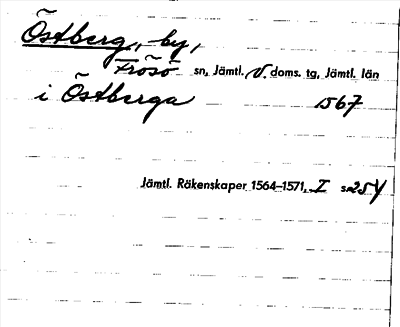 Östberg, by,
Frösö sn, Jämtl. V. doms. tg, Jämtl. län
i Östberga 1567
Jämtl. Räkenskaper 1564–1571, I s.